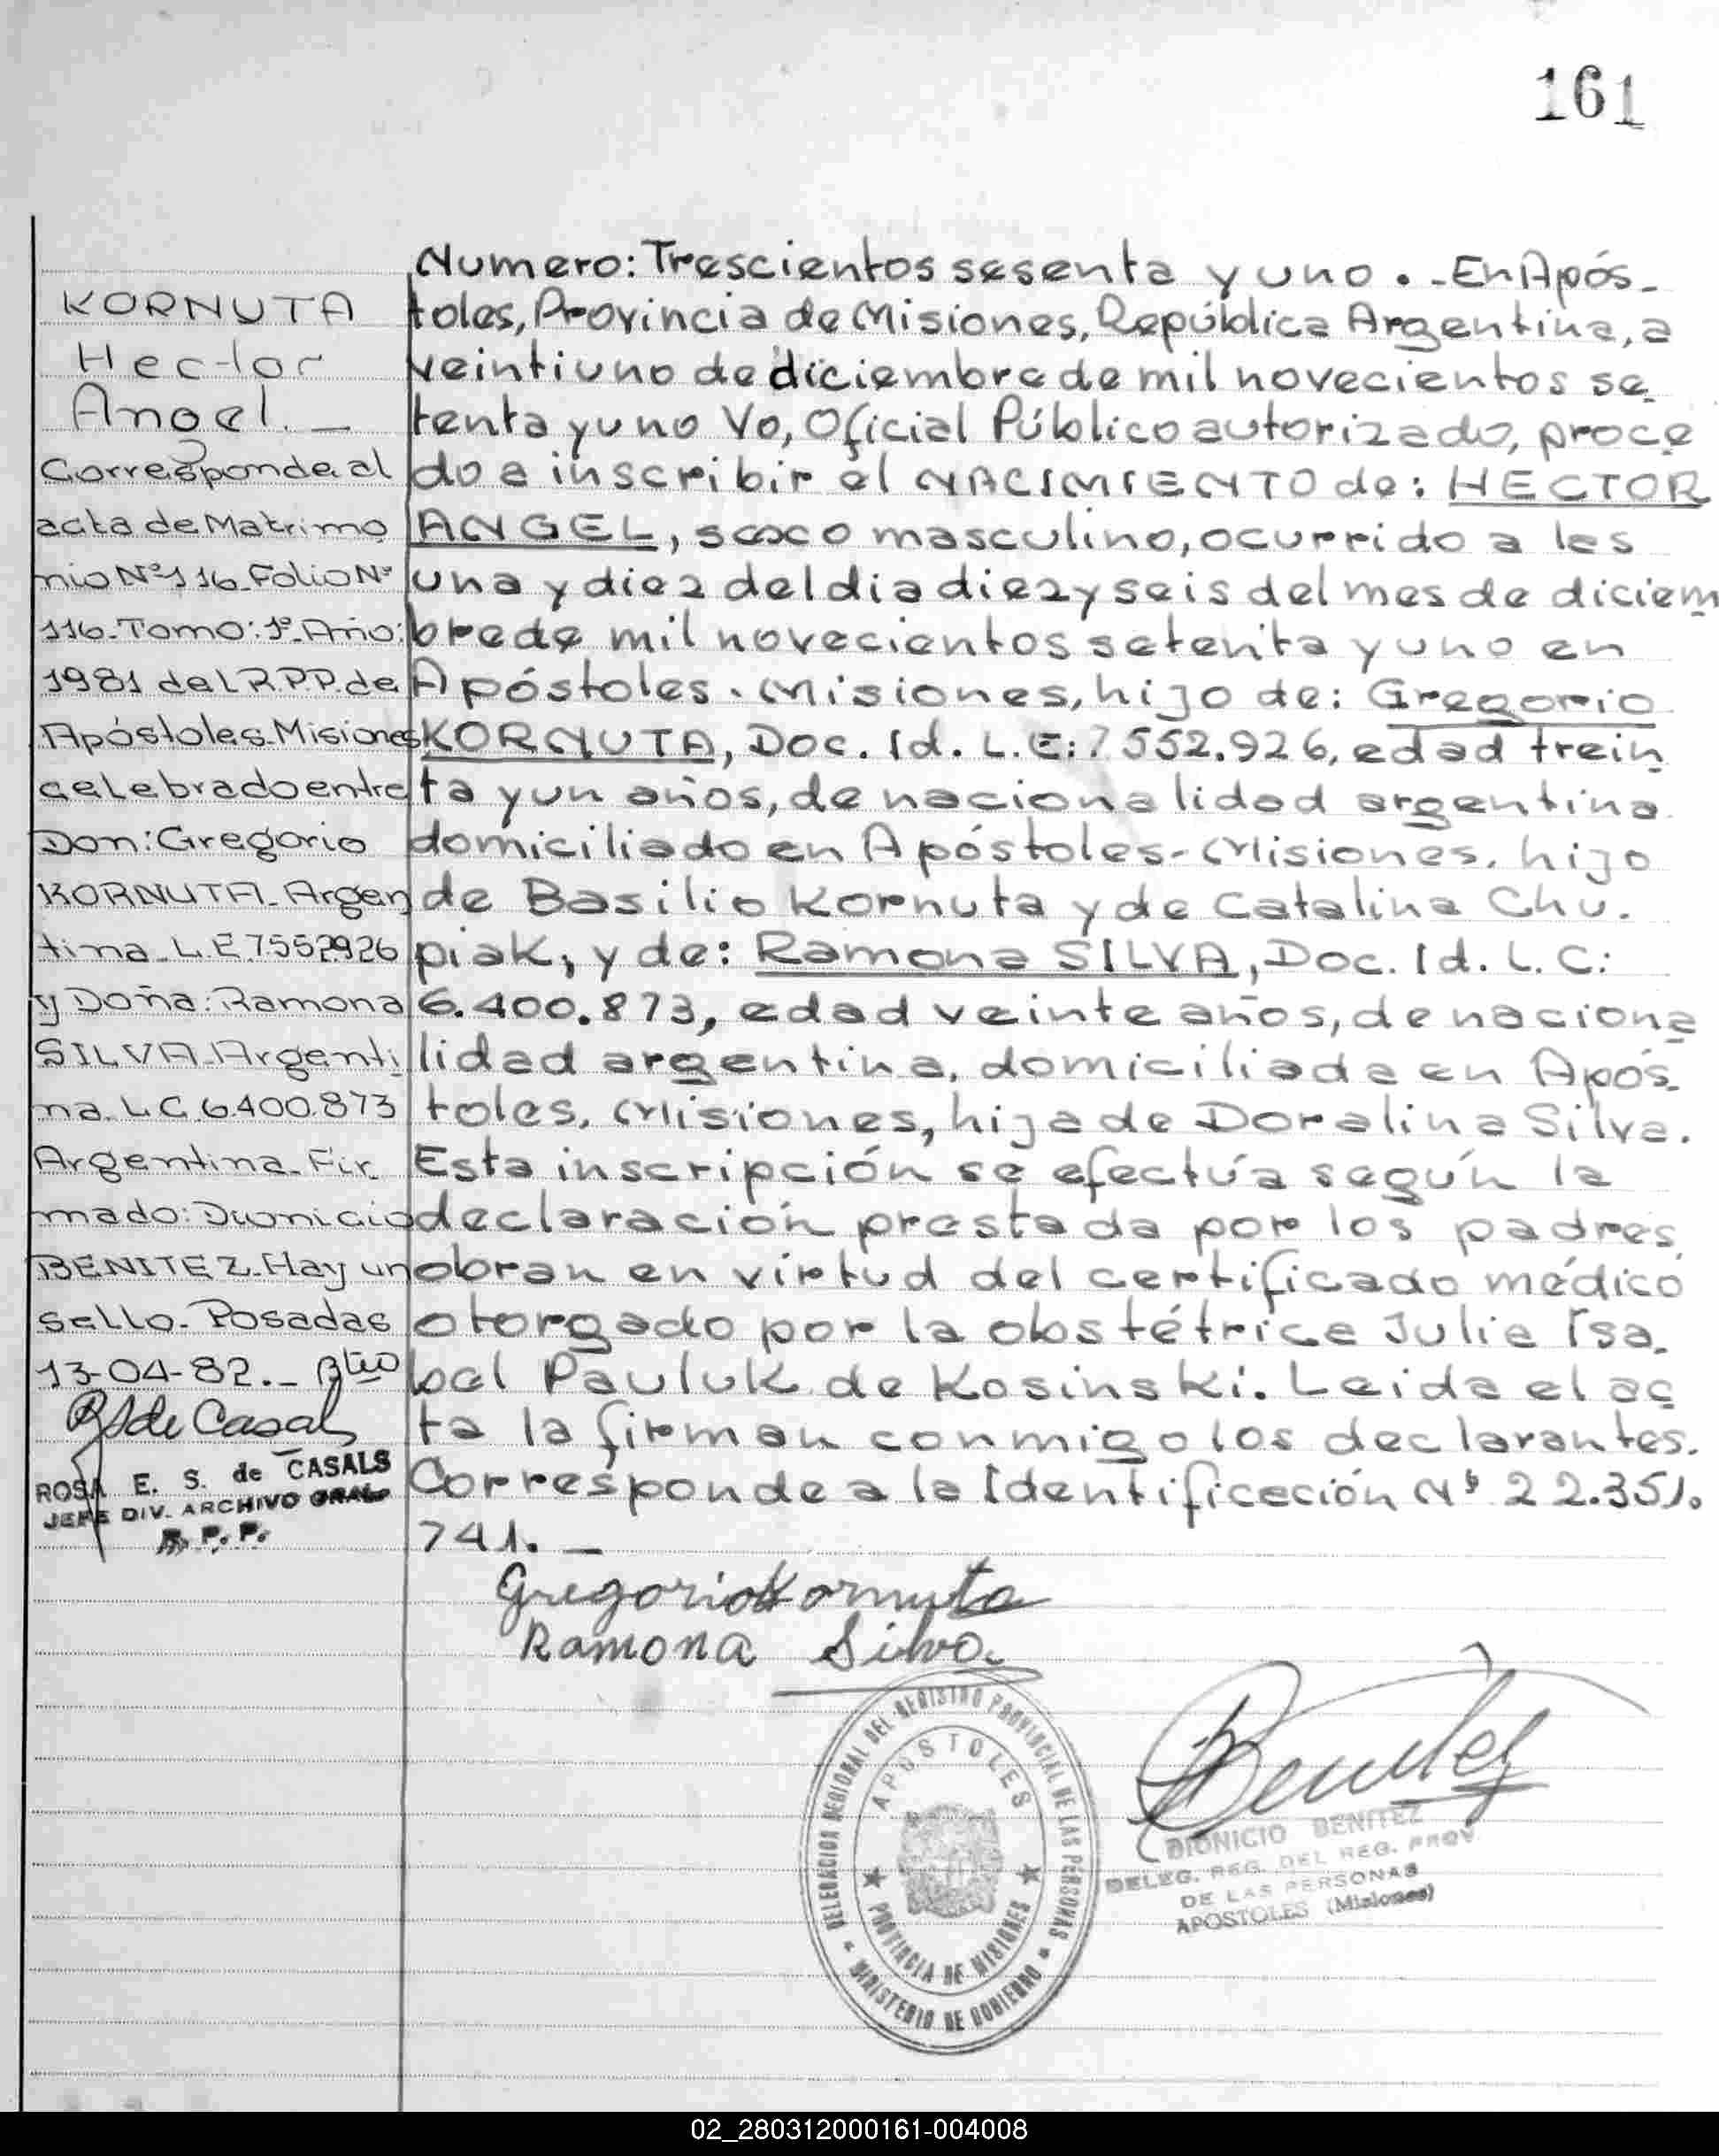 161
KORNUTA
Hector
Angel._
Corresponde al
acta de Matrimo
nio Nº 116_Folio Nº
116_Tomo:1º_Año:
1981 del R.P.P. de
Apóstoles_Misiones
celebrado entre
Don: Gregorio
KORNUTA_Argen
tina_L.E 7.552.926
y Doña: Ramona
SILVA_Argenti
na_L.C. 6.400.873
Argentina_Fir
mado: Dionicio
BENITEZ_Hay un
sello_Posadas
13-04-82._
RS de Casals
ROSA E. S. de CASALS
JEFE DIV. ARCHIVO GRAL.
R. P. P.
Numero: Trescientos sesenta y uno . _ En Após_
toles, Provincia de Misiones, República Argentina, a
veintiuno de diciembre de mil novecientos se
tenta y uno Yo, Oficial Público autorizado, proce
do a inscribir el NACIMIENTO de: HECTOR
ANGEL, sexo masculino, ocurrido a las
una y diez del dia diez y seis del mes de diciem
bre de mil novecientos setenta y uno en
Apóstoles. Misiones, hijo de: Gregorio
KORNUTA, Doc. Id. L.E: 7552.926, edad trein
ta y un años, de nacionalidad argentina
domiciliado en Apóstoles-Misiones. hijo
de Basilio Kornuta y de Catalina Chu.
piak, y de: Ramona SILVA, Doc. Id. L.C:
6.400.873, edad veinte años, de naciona
lidad argentina, domiciliada en Após_
toles, Misiones, hija de Doralina Silva.
Esta inscripción se efectúa según la
declaración prestada por los padres,
obran en virtud del certificado médico
otorgado por la obstétrica Julia Isa_
bel Pauluk de Kosinski. Leida el ac
ta la firman conmigo los declarantes.
Corresponde a la Identificación Nº 22.351.
741. _
Gregorio Kornuta
Ramona Silva
DELEGACION REGIONAL DEL REGISTRO PROVINCIAL DE LAS PERSONAS
APOSTOLES
PROVINCIA DE MISIONES
MINISTERIO DE GOBIERNO
Benitez
DIONICIO BENITEZ
DELEG. REG. DEL REG. PROV.
DE LAS PERSONAS
APOSTOLES (Misiones)
02_280312000161-004008